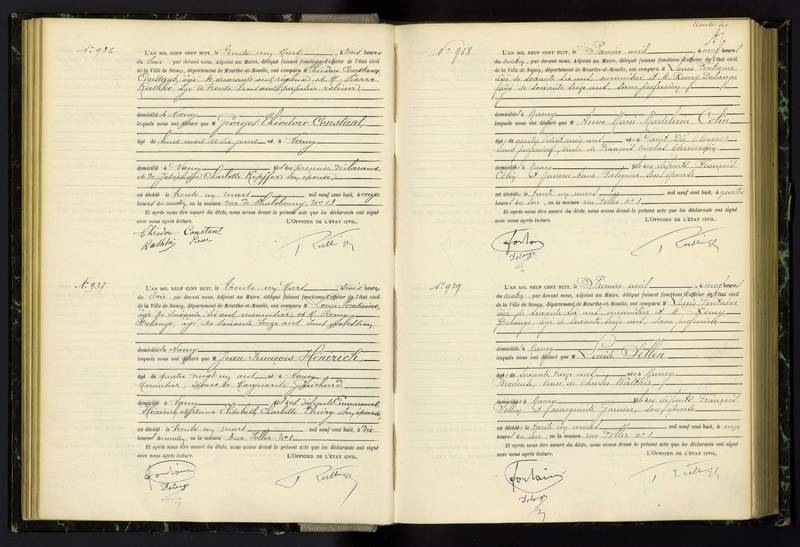 N° 936
L'AN MIL NEUF CENT HUIT, le trente un Mars, à trois heures
du Soir, par devant nous, Adjoint au Maire, délégué faisant fonctions d'officier de l'état civil
de la Ville de Nancy, département de Meurthe-et-Moselle, ont comparu M Théodore Constant
âgé de quarante ans et M Pierre
âgé de trente trois ans
domicilié à Nancy
lesquels nous ont déclaré que M Georges Théodore Constant
âgé de huit mois et dix jours né à Nancy
domicilié à Nancy fils du premier déclarant
et de Joséphine Charlotte Kipffer son épouse
est décédé le trente un mars mil neuf cent huit, à onze
heures du matin, en la maison rue de Phalsbourg, N° 13
Et après nous être assuré du décès, nous avons dressé le présent acte que les déclarants ont signé
avec nous après lecture. L'OFFICIER DE L'ÉTAT CIVIL,
Constant
N° 937
L'AN MIL NEUF CENT HUIT, le trente un Mars, à trois heures
du Soir, par devant nous, Adjoint au Maire, délégué faisant fonctions d'officier de l'état civil
de la Ville de Nancy, département de Meurthe-et-Moselle, ont comparu M Louis Fontaine
âgé de soixante six ans menuisier et M Remy
Delange, âgé de soixante seize ans sans profession
domicilié à Nancy
lesquels nous ont déclaré que M Jean François Hénerich
âgé de quatre vingt un ans né à Nancy
Menuisier, époux de Marguerite
domicilié à Nancy fils des défunts Emmanuel
Elisabeth Charlotte Thiéry son épouse
est décédé le trente un mars mil neuf cent huit, à dix
heures du matin, en la maison Rue Feller N° 1
Et après nous être assuré du décès, nous avons dressé le présent acte que les déclarants ont signé
avec nous après lecture. L'OFFICIER DE L'ÉTAT CIVIL,
Fontaine
Delange
N° 938
L'AN MIL NEUF CENT HUIT, le Premier avril, à neuf heures
du matin, par devant nous, Adjoint au Maire, délégué faisant fonctions d'officier de l'état civil
de la Ville de Nancy, département de Meurthe-et-Moselle, ont comparu M Louis Fontaine
âgé de soixante six ans, menuisier et M. Remy Delange
âgé de soixante seize ans sans profession
domicilié à Nancy
lesquels nous ont déclaré que M Anne Marie Madeleine Colin
âgé de quatre vingt ans né à Saint Dié (Vosges)
sans profession, veuve de François Nicolas
domicilié à Nancy fille des défunts François
Colin et Jeanne Anne son épouse
est décédé le trente un mars mil neuf cent huit, à quatre
heures du soir, en la maison rue Feller n° 1
Et après nous être assuré du décès, nous avons dressé le présent acte que les déclarants ont signé
avec nous après lecture. L'OFFICIER DE L'ÉTAT CIVIL,
Fontaine
Delange
N° 939
L'AN MIL NEUF CENT HUIT, le Premier avril, à neuf heures
du matin, par devant nous, Adjoint au Maire, délégué faisant fonctions d'officier de l'état civil
de la Ville de Nancy, département de Meurthe-et-Moselle, ont comparu M Louis Fontaine
âgé de soixante six ans menuisier et M Remy
Delange âgé de soixante seize ans, sans profession
domicilié à Nancy
lesquels nous ont déclaré que M Louise
âgé de soixante ans né à Nancy
Brodeuse, veuve de Charles
domicilié à Nancy fille des défunts François
et son épouse
est décédé le trente un mars mil neuf cent huit, à onze
heures du soir, en la maison rue Feller n° 1
Et après nous être assuré du décès, nous avons dressé le présent acte que les déclarants ont signé
avec nous après lecture. L'OFFICIER DE L'ÉTAT CIVIL,
Fontaine
Delange